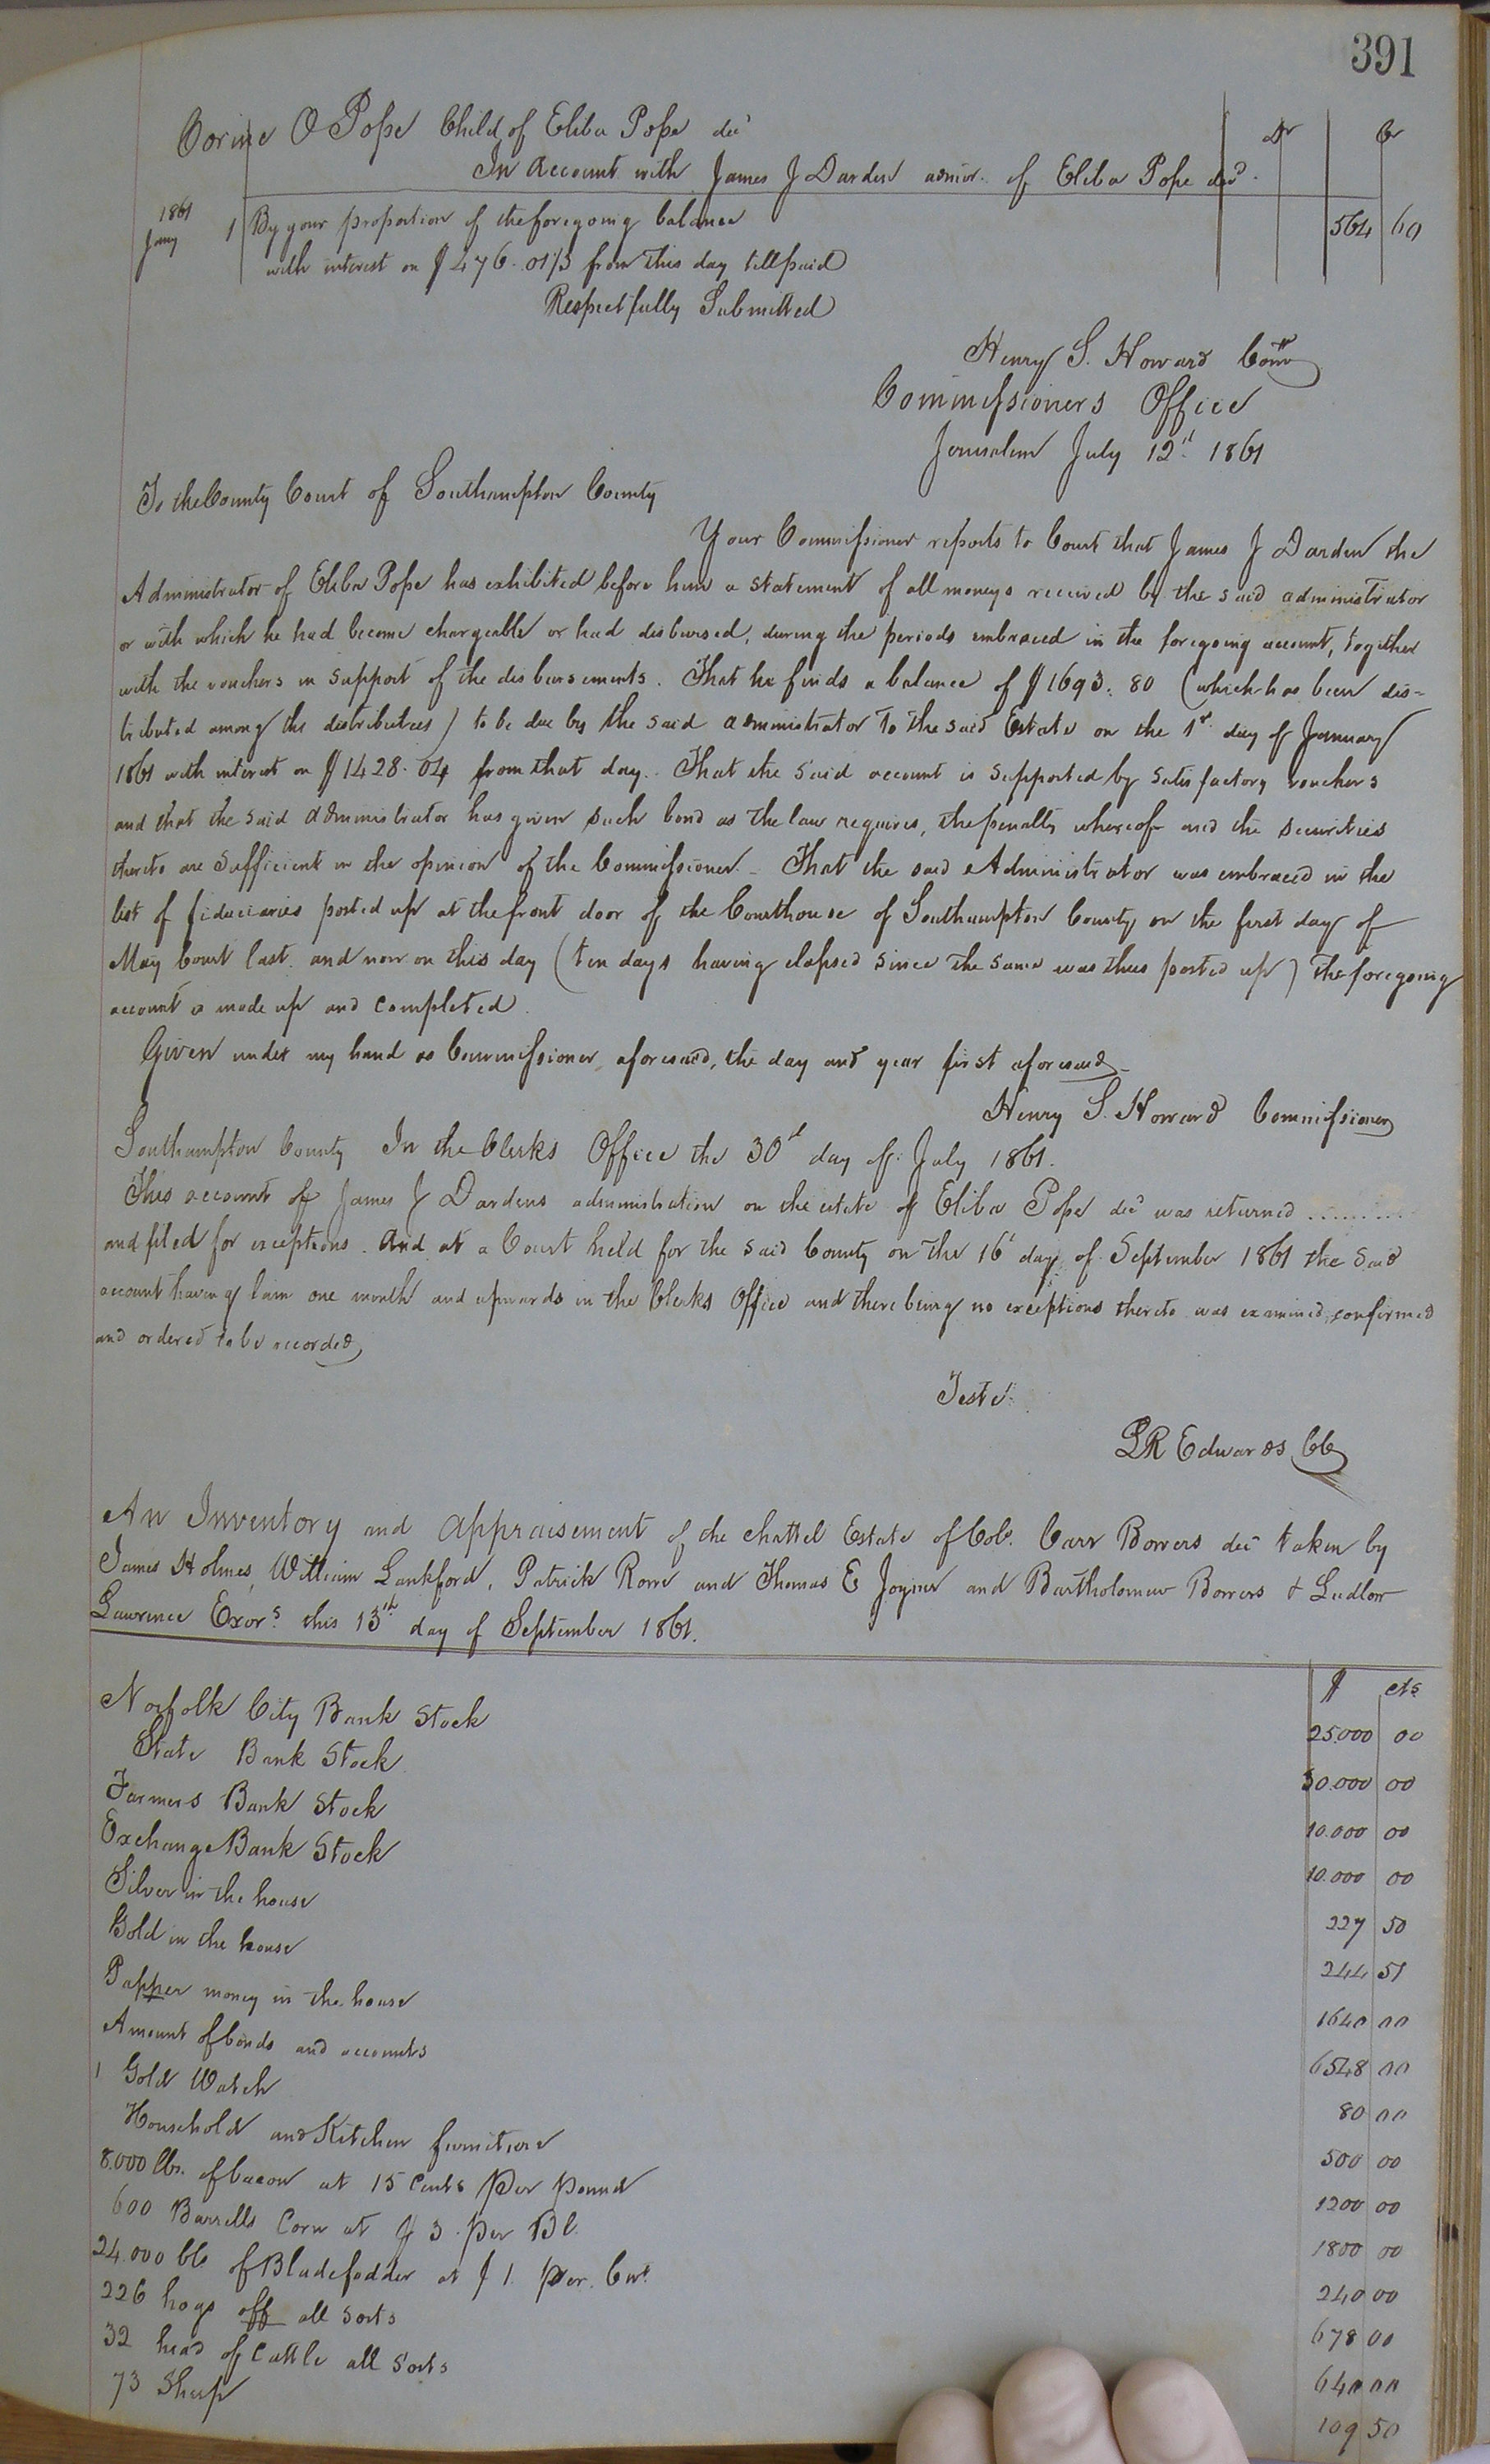 391
Corine O Pope Child of Eliba Pope dec'
Dr Cr
In Account with James J Darden admor. of Eliba Pope decd.
1861
Jany 1 By your proportion of the foregoing balance 564 60
with interest on $476.01⅓ from this day till paid
Respectfully Submitted
Henry S. Howard Comr
Commissioners Office
Jerusalem July 12th 1861
To the County Court of Southampton County
Your Commissioner reports to Court that James J Darden the
Administrator of Eliba Pope has exhibited before him a statement of all moneys received by the said administrator
or with which he had become chargeable or had disbursed, during the periods embraced in the foregoing account, together
with the vouchers in support of the disbursements. That he finds a balance of $1693.80 (which has been dis-
tributed among the distributees) to be due by the said administrator to the said Estate on the 1st day of January
1861 with interest on $1428.04 from that day. That the said account is supported by satisfactory vouchers
and that the said administrator has given such bond as the law requires, the penalty whereof and the securities
thereto are sufficient in the opinion of the Commissioner. – That the said Administrator was embraced in the
list of fiduciaries posted up at the front door of the Courthouse of Southampton County on the first day of
May Court last, and now on this day (ten days having elapsed since the same was thus posted up) the foregoing
account is made up and completed.
Given under my hand as Commissioner aforesaid, the day and year first aforesaid –
Henry S. Howard Commissioner
Southampton County In the Clerks Office the 30th day of July 1861.
This account of James J Dardens administration on the estate of Eliba Pope dec' was returned .........
and filed for exceptions. And at a Court held for the said County on the 16th day of September 1861 the said
account having lain one month and upwards in the Clerks Office and there being no exceptions thereto was examined, confirmed
and ordered to be recorded
Teste.
LR Edwards CC
An Inventory and appraisement of the chattel Estate of Col. Carr Bowers dec' taken by
James Holmes, William Lankford, Patrick Rowe and Thomas E Joyner and Bartholomew Bowers & Ludlow
Lawrence Exors. this 13th day of September 1861.
$ cts
Norfolk City Bank Stock 25.000 00
State Bank Stock 30.000 00
Farmers Bank Stock 10.000 00
Exchange Bank Stock 10.000 00
Silver in the house 227 50
Gold in the house 244 51
Papper money in the house 1640 00
Amount of bonds and accounts 6548 00
1 Gold Watch 80 00
Household and Kitchen furniture 500 00
8.000 lbs. of bacon at 15 Cents per pound 1200 00
600 Barrells Corn at $3. per Bl. 1800 00
24.000 lbs of Bladefodder at $1. per. Cwt. 240 00
226 hogs off all sorts 678 00
32 head of Cattle all sorts 640 00
73 Sheep 109 50